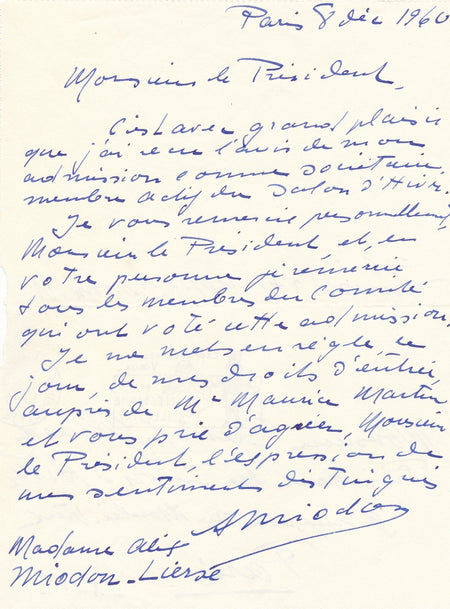 Paris 8 déc 1960
Monsieur le Président,
C'est avec grand plaisir
que j'ai reçu l'avis de mon
admission comme sociétaire,
membre actif du Salon d'Hiver.
Je vous remercie personnellement,
Monsieur le Président et, en
votre personne je remercie
tous les membres du Comité
qui ont voté cette admission.
Je me mets en règle ce
jour, de mes droits d'entrée,
auprès de Mr Maurice Martin
et vous prie d'agréer, Monsieur
le Président, l'expression de
mes sentiments distingués
AMiodon
Madame Alix
Miodon-Lierse